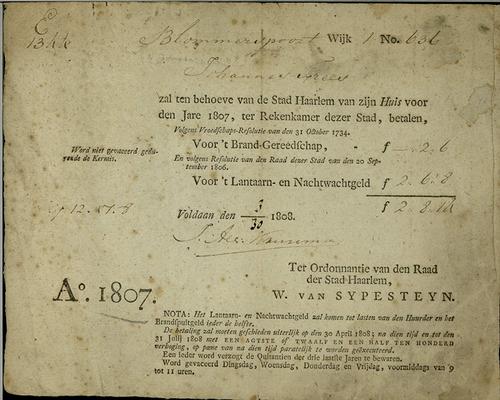 E
13 4 te
Blommerspoort Wijk 1 No. 636
Johannes
zal ten behoeve van de Stad Haarlem van zijn Huis voor
den Jare 1807, ter Rekenkamer dezer Stad, betalen,
Volgens Vroedschaps-Resolutie van den 31 October 1734.
Voor 't Brand-Gereedschap, - f — 2. 6
En volgens Resolutie van den Raad dezer Stad van den 20 September 1806.
Word niet gevaceerd gedurende de Kermis.
Voor 't Lantaarn- en Nachtwachtgeld f 2. 6: 8
f 2. 8. 14
Voldaan den 3/30 1808.
Ter Ordonnantie van den Raad
der Stad Haarlem,
W. VAN SYPESTEYN.
A°. 1807.
NOTA: Het Lantaarn- en Nachtwachtgeld zal komen tot lasten van den Huurder en het
Brandspuitgeld ieder de helfte.
De betaling zal moeten geschieden uiterlijk op den 30 April 1808; na dien tijd en tot den
31 Julij 1808 met EEN AGTSTE of TWAALF EN EEN HALF TEN HONDERD
verhoging, op pane van na dien tijd paratelijk te worden geëxecuteerd.
Een ieder word verzogt de Quitantien der drie laatste Jaren te bewaren.
Word gevaceerd Dingsdag, Woensdag, Donderdag en Vrijdag, voormiddags van 9
tot 11 uren.